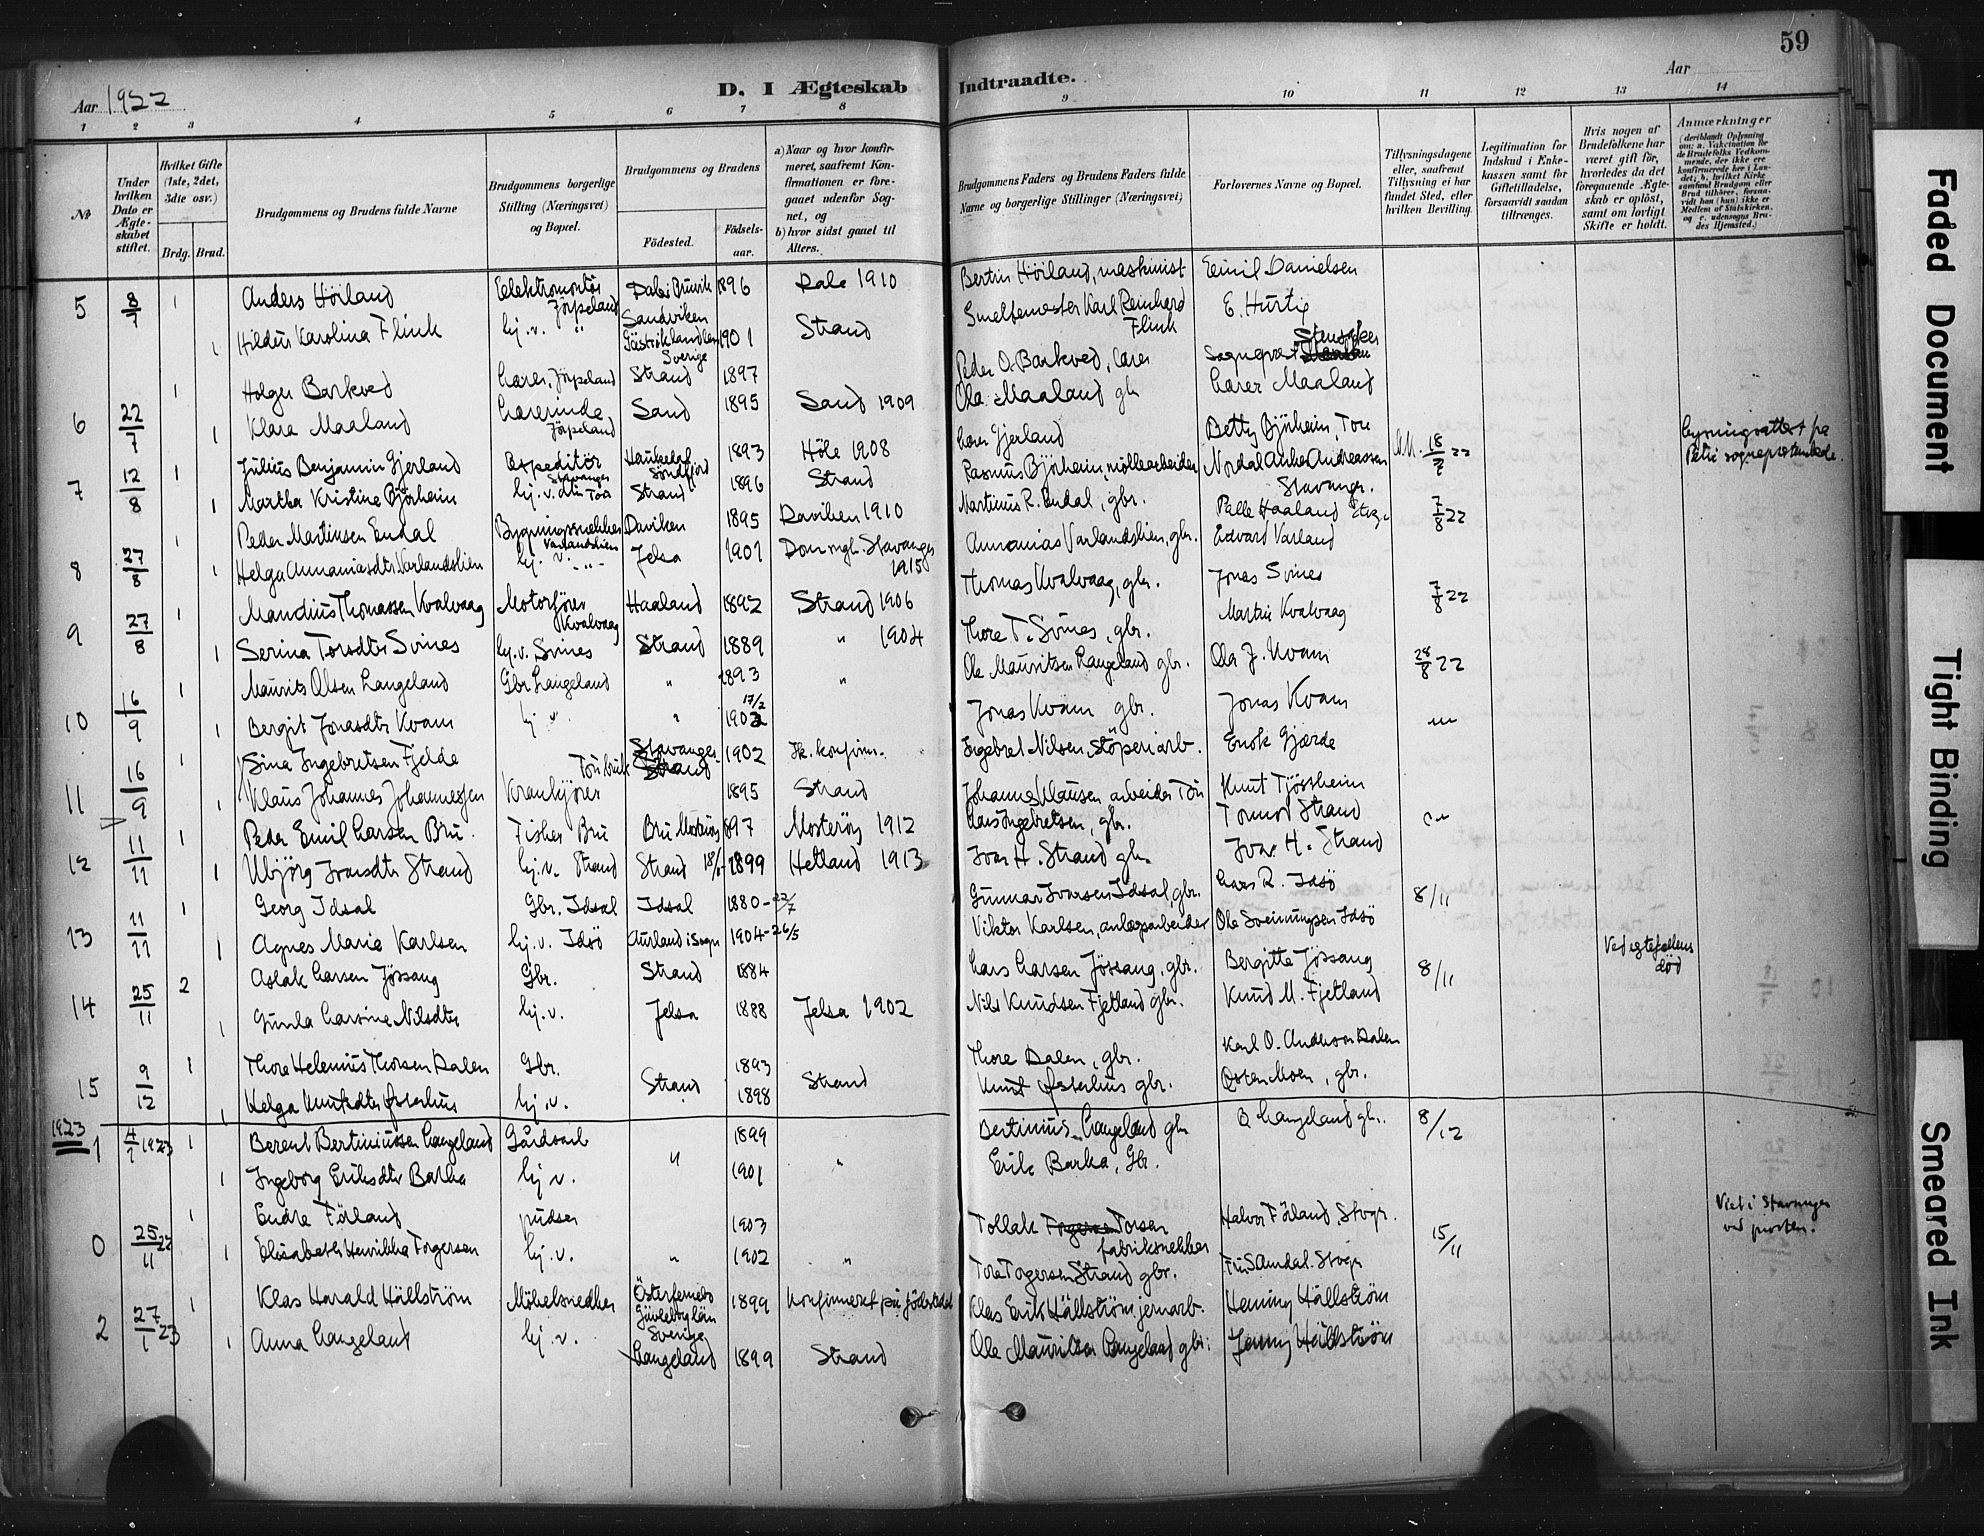 59
Aar 1922
D. I Ægteskab Indtraadte.
Aar
1 2 3 4 5 6 7 8 9 10 11 12 13 14
№
Under hvilken Dato er Ægteskabet stiftet.
Hvilket Gifte (1ste, 2det, 3die osv.)
Brdg. Brud.
Brudgommens og Brudens fulde Navne
Brudgommens borgerlige Stilling (Næringsvei) og Bopæl.
Brudgommens og Brudens
Födested.
Födselsaar.
a) Naar og hvor konfirmeret, saafremt Konfirmationen er foregaaet udenfor Sognet, og
b) hvor sidst gaaet til Alters.
Brudgommens Faders og Brudens Faders fulde Navne og borgerlige Stillinger (Næringsvei)
Forlovernes Navne og Bopæl.
Tillysningsdagene eller, saafremt Tillysning ei har fundet Sted, efter hvilken Bevilling.
Legitimation for Indskud i Enkekassen samt for Giftetilladelse, forsaavidt saadan tiltrænges.
Hvis nogen af Brudefolkene har været gift för, hvorledes da det foregaaende Ægteskab er oplöst, samt om lovligt Skifte er holdt.
Anmærkninger
(deriblandt Oplysning om: a. Vakcination for de Brudefolks Vedkommende, der ikke ere konfirmerede her i Landet; b. hvilket Kirkesamfund Brudgom eller Brud tilhörer, forsaavidt han (hun) ikke er Medlem af Statskirken, og c. udensogns Brudes Hjemsted.)
5 8/7 1 Anders Höiland Jörpeland 1896 Dale 1910 Bertin Höiland, maskinist Emil Danielsen
1 Hildur Karolina Flink hj. v. " Sandviken Gästrikland Sverige 1901 Strand Smeltemester Karl Reinhard Flink E. Hurtig
6 22/7 1 Holger Barkved Lærer, Jörpeland Strand 1897 Peder O. Barkved, lærer Sogneprest
1 Klara Maaland Lærerinde, Jörpeland Sand 1895 Sand 1909 Ola Maaland gbr Lærer Maaland
7 12/8 1 Julius Benjamin Gjerland Expeditör Stavanger Haukedal Söndfjord 1893 Höle 1908 Gjerland Betty Björheim, Tou 18/7 22
1 Martha Kristine Björheim hj. v. Tou Strand 1896 Strand Rasmus Björheim, möllearbeider Nordal Anker Andreassen Stavanger.
8 27/8 1 Peder Martinsen Endal Bygningssnekker Varlandslien Daviken 1895 Daviken 1910 Martinus R. Endal, gbr. Palle Haaland Stvgr. 7/8 22
1 Helga Annaniasdtr Varlandslien hj. v. -"- Jelsa 1901 Domsogn. Stavanger 1915 Annanias Varlandslien, gbr. Edvard Varland
9 27/8 1 Mandius Thomassen Kvalvaag Motorförer Kvalvaag Haaland 1892 Strand 1906 Thomas Kvalvaag, gbr. Jonas Svines 7/8 22
1 Serina Torsdtr Svines hj. v. Svines Strand 1889 " 1904 Thore T. Svines, gbr. Martin Kvalvaag
10 16/9 1 Maurits Olsen Langeland Gbr Langeland " 1893 " Ole Mauritsen Langeland gbr. Ola J. Kvam 28/8 22
1 Bergit Jonasdtr Kvam hj. v. " 17/2 1902 Jonas Kvam gbr. Jonas Kvam
11 16/9 1 Sina Ingebretsen Fjelde Stavanger 1902 Ik. konfirm. Ingebret Nilsen, Stöperiarb. Enok Gjerde
1 Klaus Johannes Johannessen Krankjörer 1895 Strand Johannes Klausen arbeider Tou Knut Tjössheim
12 11/11 1 Peder Emil Larsen Bru. Fisker Bru Bru Mosteröy 1897 Mosteröy 1912 Lars Ingebretsen, gbr. Tormod Strand
1 Ubjörg Ivarsdtr Strand hj. v. Strand Strand 1899 Hetland 1913 Ivar H. Strand gbr Ivar H. Strand
13 11/11 1 Georg Idsal Gbr. Idsal Idsal 1880 - 22/7 Gunnar Ivarsen Idsal, gbr. Lars R. Idsö 8/11
1 Agnes Marie Karlsen hj. v. Idsö Aurland i Sogn 1904 - 26/5 Viktor Karlsen, anlægsarbeider Ole Sveinungsen Idsö
14 25/11 2 Aslak Larsen Jössang Gbr. Strand 1884 Lars Larsen Jössang, gbr. Bergitte Jössang 8/11 Ved egtefællens död
1 Gunla Larsine Nilsdtr hj. v. Jelsa 1888 Jelsa 1902 Nils Knudsen Fjetland gbr. Knud M. Fjetland
15 9/12 1 Thore Helenius Thorsen Dalen Gbr. 1893 Thore Dalen, gbr. Karl O. Dalen
1 Helga Knutsdtr Østerhus hj. v. Strand 1898 Strand Knut Østerhus gbr. Østen Moen, gbr.
1923
1 4/1 1923 1 Berent Bertiniussen Langeland Gårdsarb 1899 Bertinius Langeland gbr O Langeland gbr. 8/12
1 Ingeborg Eriksdtr Barka hj. v. " 1901 " Erik Barka, Gbr.
0 25/11 22 1 Endre Förland pudser 1903 Tollak Torsen fabriksnekker Halvor Förland, Stvgr. 15/11 Viet i Stavanger ved presten.
1 Elisabeth Henrikka Torgersen hj. v. " 1902 " Tore Torgersen Strand gbr. Aandal. Stvgr
2 27/1 23 1 Klas Harald Hällström Möbelsnedker Österfernebo Gävleborg län Sverige 1899 Konfirmeret på födestedet Klas Erik Hällström jernarb. Henning Hällström
1 Anna Langeland hj. v. Langeland 1899 Strand Ole Mauritsen Langeland gbr. Jenny Hällström
Faded Document
Tight Binding
Smeared Ink